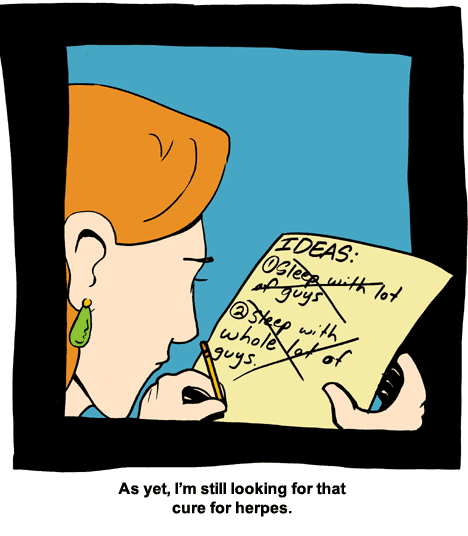 IDEAS:
① Sleep with lot
of guys
② Sleep with
whole lot of
guys.
As yet, I'm still looking for that
cure for herpes.